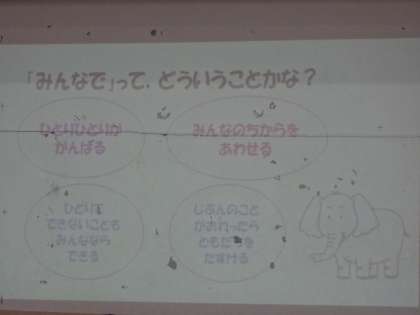 「みんなで」って、どういうことかな？
ひとりひとりが
がんばる
みんなのちからを
あわせる
ひとりで
できないことも
みんななら
できる
じぶんのこと
がおわったら
ともだちを
たすける